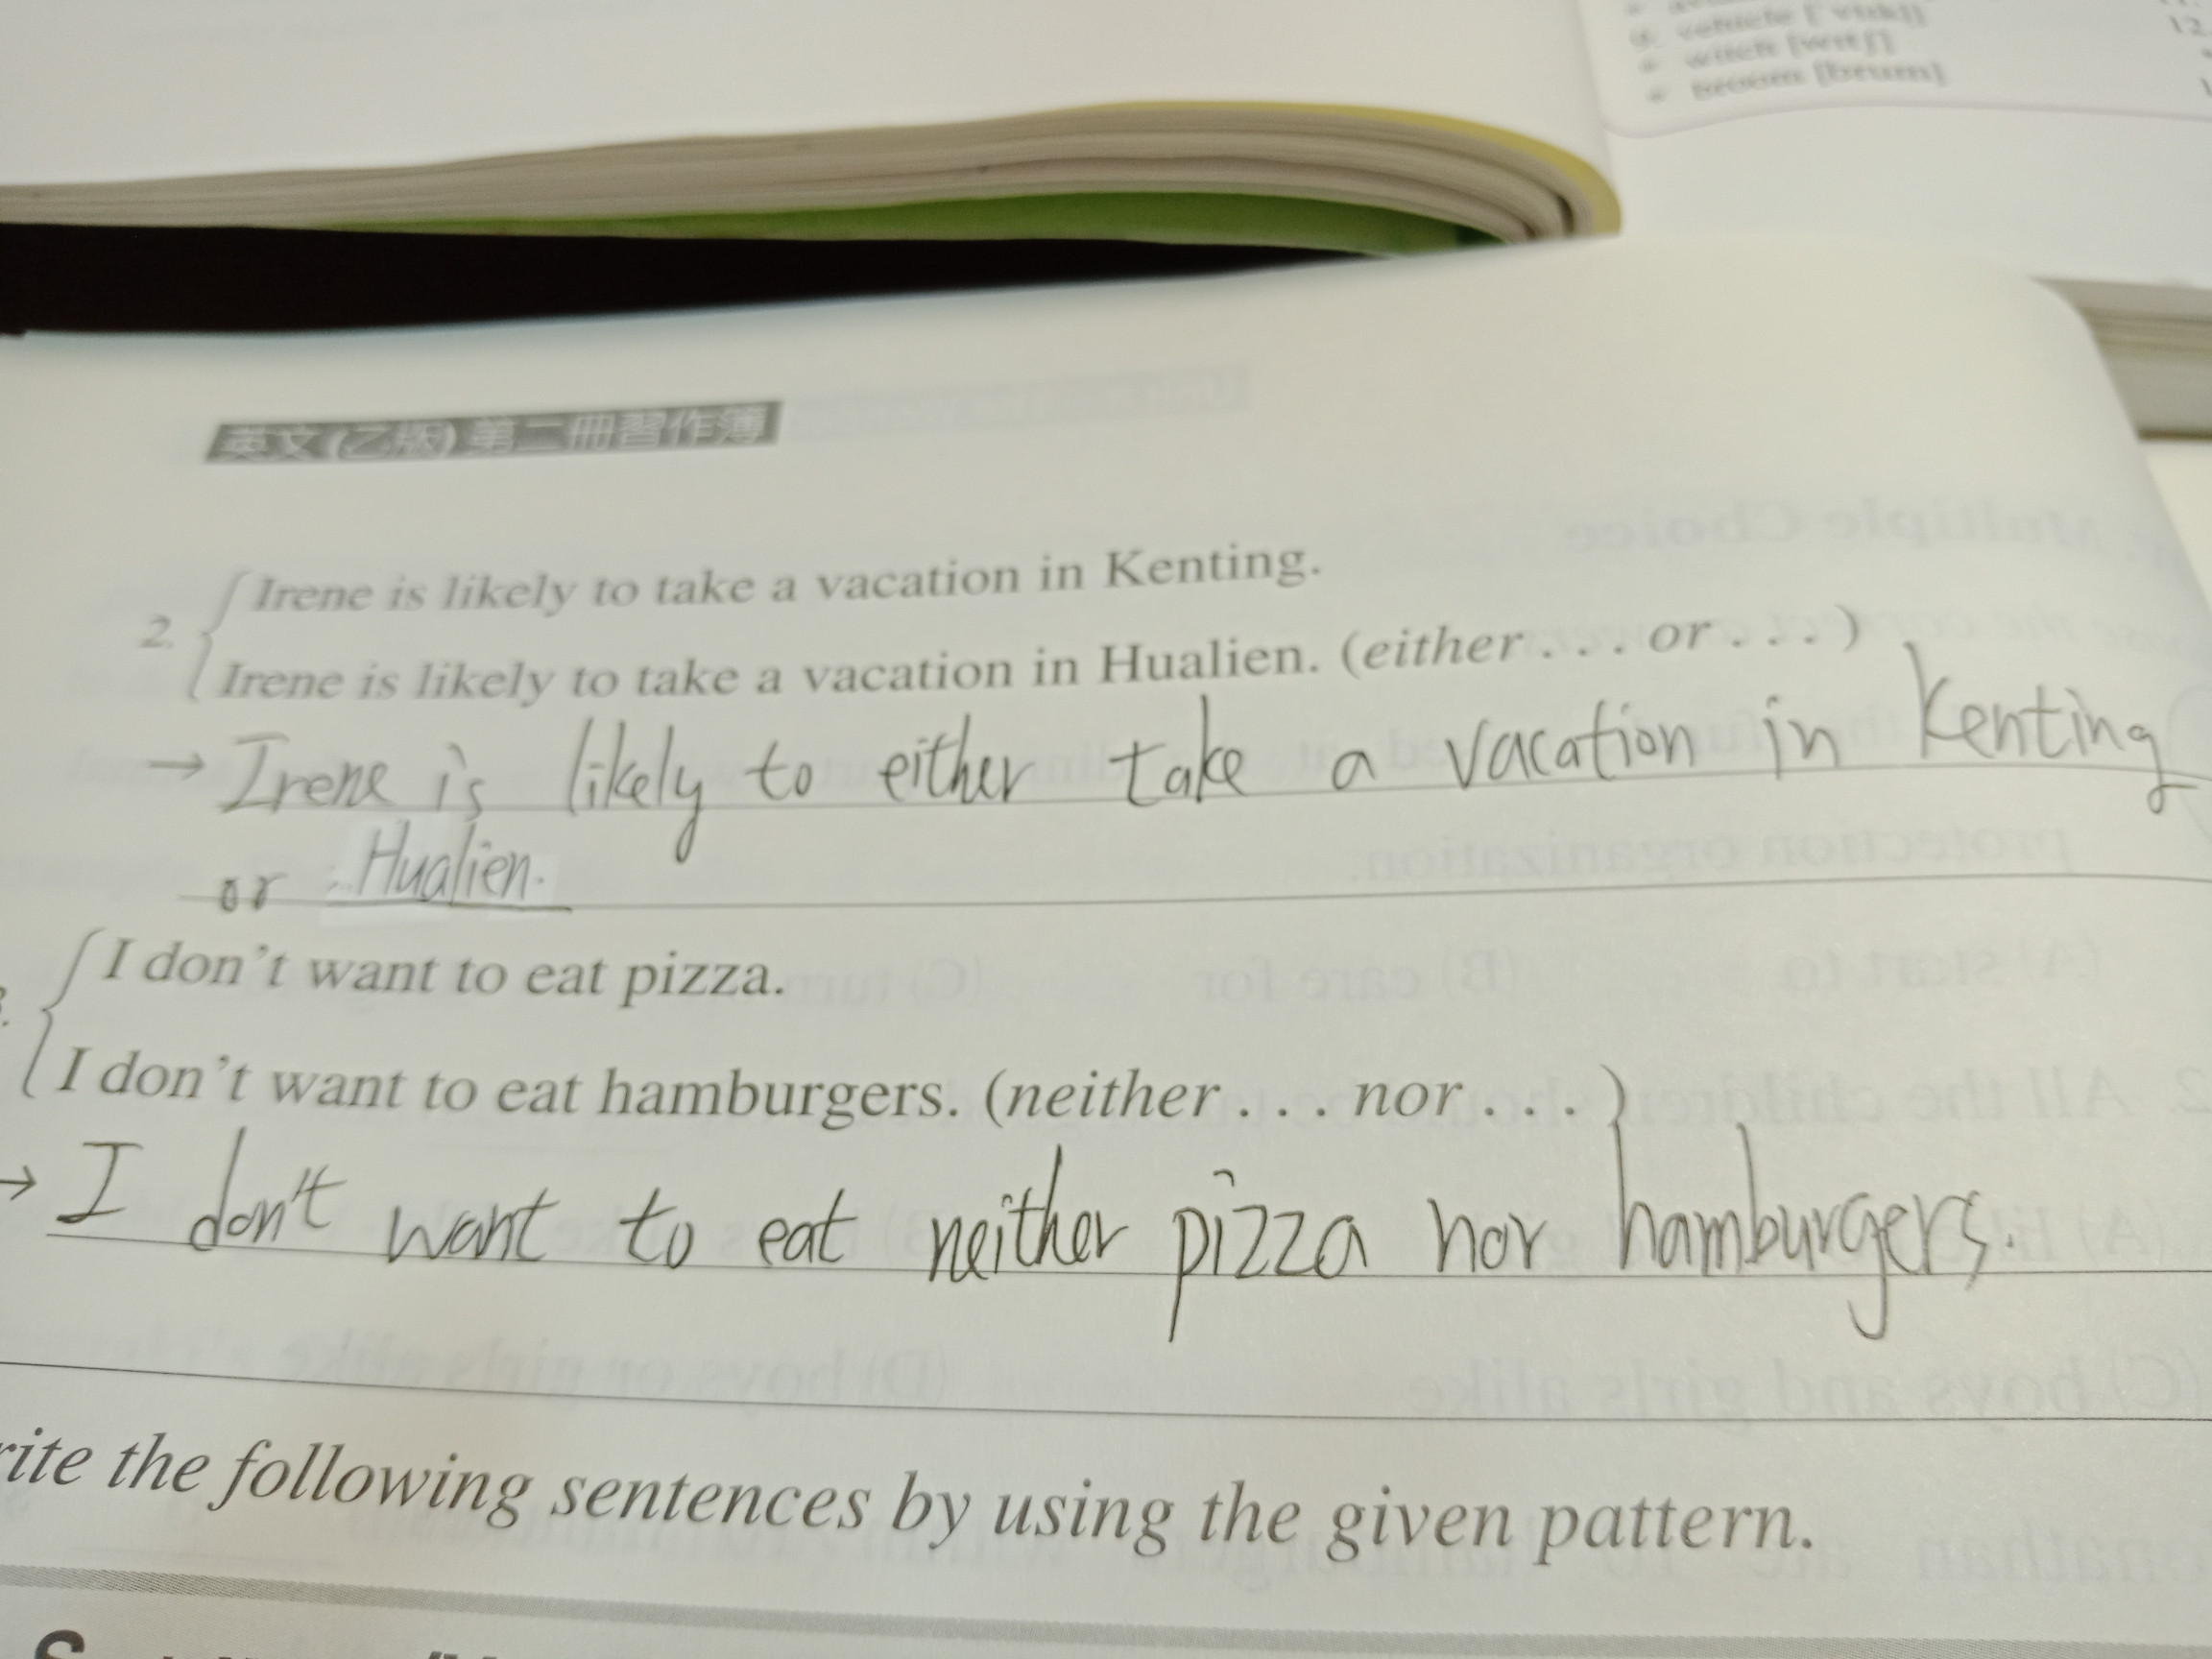 witch
broom
12.
英文(乙版)第二冊習作簿
2. Irene is likely to take a vacation in Kenting.
Irene is likely to take a vacation in Hualien. (either . . . or . . . )
→ Irene is likely to either take a vacation in Kenting
or Hualien.
I don't want to eat pizza.
I don't want to eat hamburgers. (neither . . . nor . . . )
→ I don't want to eat neither pizza nor hamburgers.
rite the following sentences by using the given pattern.